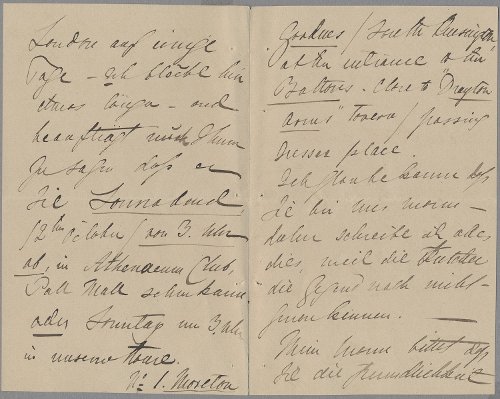 London auf einige
Tage – ich bleibe hier
etwas länger – und
beauftragt mich Ihnen
zu sagen daß er
Sie Sonnabend,
(2ten October) von 3. Uhr
ab, im Athenaeum Club,
Pall Mall sehen kann
oder Sonntag um 3. Uhr
in unserem Hause.
No: 1. Moreton
Gardens / South Kensington,
at the entrance to the
Boltons. Close to "Drayton
Arms" Tavern / passing
Dresser place.
Ich glaube kaum daß
Sie bei uns waren –
daher schreibe ich alles
dies, weil die Kutscher
die Gegend noch nicht
genau kennen. –
Mein Mann bittet daß
Sie die Freundlichkeit